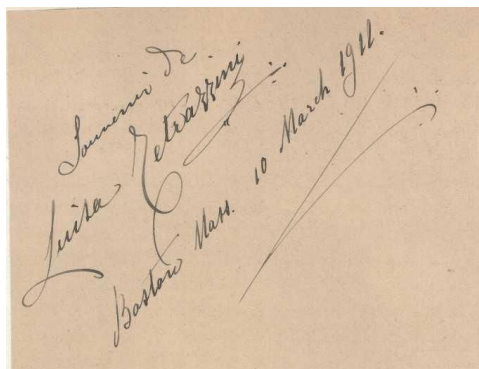 Souvenir de
Luisa Tetrazzini
Boston Mass. 10 March 1911.